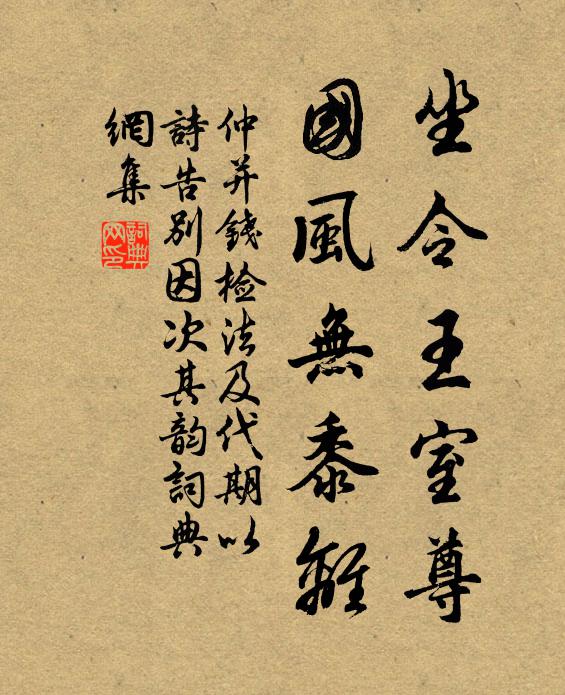 坐令王室尊
國風無黍離
仲并錢檢法及代期以
詩告别因次其韵詞典
網集
詞典
网印